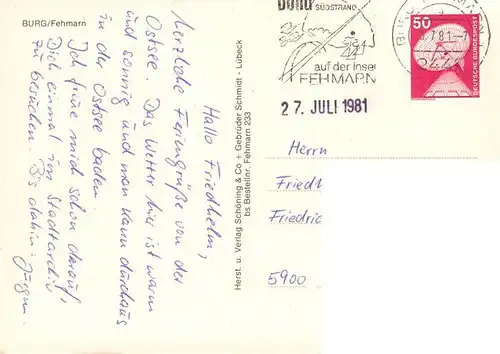 BURG/Fehmarn
Hallo Friedhelm,
herzliche Feriengrüße von der
Ostsee. Das Wetter hier ist warm
und sonnig und man kann durchaus
in der Ostsee baden.
Ich freue mich schon darauf,
Dich einmal im Stadtarchiv
zu besuchen. Bis dahin:
Jürgen.
Herst. u. Verlag Schöning & Co + Gebrüder Schmidt - Lübeck
bs Bestellnr. Fehmarn 233
SÜDSTRAND
auf der Insel
FEHMARN
27. JULI 1981
50
DEUTSCHE BUNDESPOST
Herrn
Friedh
Friedric
5900